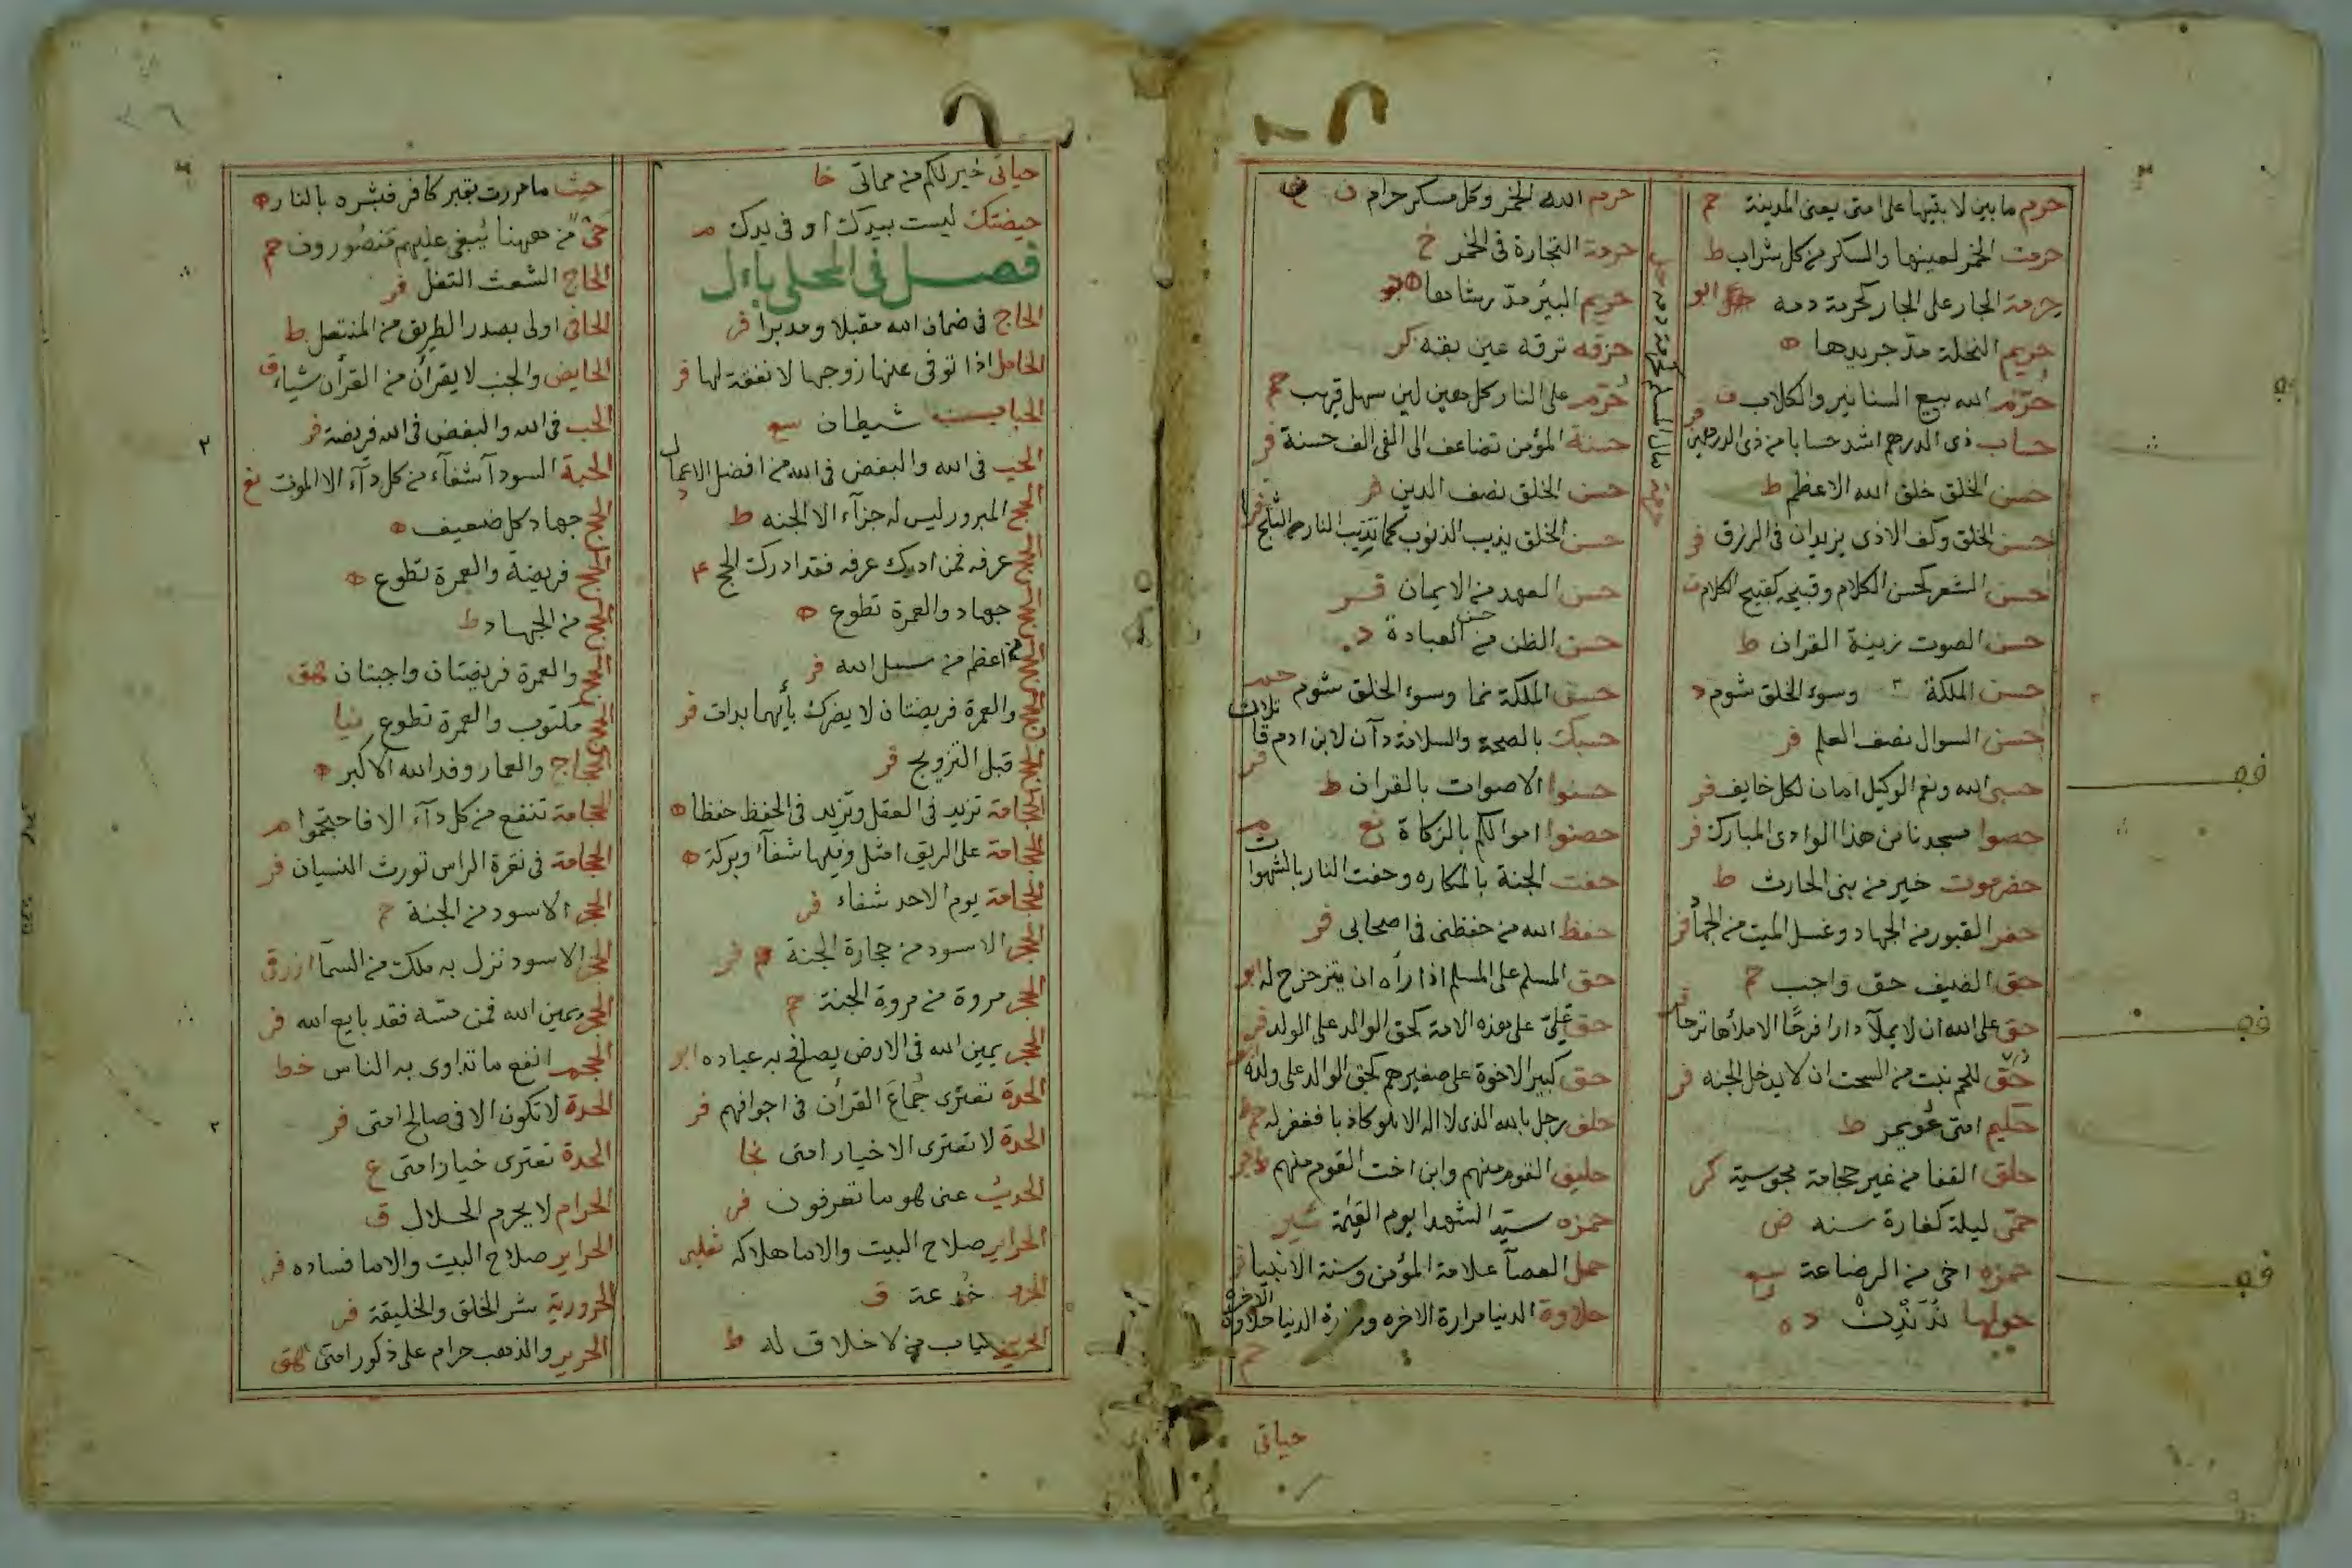 حرم ما بين لابتيها على امتى يعنى المدينة حم
حرمت الخمر لعينها والسكر من كل شراب ط
حرمة الجار على الجار كحرمة دمه ابو
حريم النخلة مدّ جريدها ه
حرّم الله بيع السنانير والكلاب
حساب ذى الدرهم اشد حسابا من ذى الدرهمين فر
حسن الخلق خلق الله الاعظم ط
حسن الخلق وكف الاذى يزيدان فى الرزق فر
حسن الشعر كحسن الكلام وقبيحه كقبيح الكلام
حسن الصوت زينة القران ط
حسن الملكة وسوء الخلق شوم د
حسن السوال نصف العلم فر
حسبى الله ونعم الوكيل امان لكل خايف فر
حصوا مسجدنا من هذا الوادى المبارك فر
حضرموت خير من بنى الحارث ط
حفر القبور من الجهاد وغسل الميت من
حق الضيف حق واجب حم
حق على الله ان لا يملآ دارا فرحًا الا ملأها ترحا
حق للحم نبت من السحت ان لا يدخل الجنه فر
حكيم امتى عُويمر ط
حلق القفا من غير حجامة مجوسية كر
حمّى ليلة كفارة سنه ض
حمزه اخى من الرضاعة
حولها نُدَنْدِنْ د ه
حرم الله الخمر وكل مسكر حرام ن
حرمة التجارة فى الخمر خ
حريم البئر مدّ رشاءها
حزقه ترقه عين بقه كر
حُرّم على النار كل هين لين سهل قريب حم
حسنة المؤمن تضاعف الى الفى الف حسنة فر
حسن الخلق نصف الدين فر
حسن الخلق يذيب الذنوب كما تذيب النار الثلج
حسن العهد من الايمان
حسن الظن من حسن العبادة د
حسن الملكة نما وسوء الخلق شوم
حسبك بالصحة والسلامة دآن لابن ادم
حسنوا الاصوات بالقران ط
حصنوا اموالكم بالزكاة
حفت الجنة بالمكاره وحفت النار بالشهوات
حفظ الله من حفظنى فى اصحابى فر
حق المسلم على المسلم اذا رأه ان يتزحزح له
حق علىّ على هذه الامة كحق الوالد على الولد
حق كبير الاخوة على صغيرهم كحق الوالد على ولده
حلف رجل بالله الذى لا اله الا هو كاذبا فغفر له
حليف القوم منهم وابن اخت القوم منهم
حمزه سيد الشهدا يوم القيمة
حمل العصآ علامة المؤمن وسنة الانبيا
حلاوة الدنيا مرارة الاخره ومرارة الدنيا حلاوة الاخرة حم
حياتى
حياتى خير لكم من مماتى
حيضتك ليست بيدك او فى يدك م
فصل فى المحلى بال
الحاج فى ضمان الله مقبلا ومدبرا فر
الحامل اذا توفى عنها زوجها لا نفقة لها
الحباب شيطان
الحب فى الله والبغض فى الله من افضل الاعمال
الحج المبرور ليس له جزآء الا الجنه ط
الحج عرفه فمن ادرك عرفه فقد ادرك الحج
الحج جهاد والعمرة تطوع ه
اعظم من سبيل الله فر
الحج والعمرة فريضتان لا يضرك بأيهما بدات فر
الحج قبل التزويج فر
الحجامة تزيد فى العقل وتزيد فى الحفظ حفظا ه
الحجامة على الريق امثل وفيها شفآء وبركة ه
الحجامة يوم الاحد شفاء فر
الحجر الاسود من حجارة الجنة
الحجر مروة من مروة الجنة حم
الحجر يمين الله فى الارض يصافح به عباده
الحدة تعترى جُمَّاعَ القرأن فى اجوافهم فر
الحدة لا تعترى الا خيار امتى
الحديث عنى هو ما تعرفون فر
الحراير صلاح البيت والاما هلاكه
الحرب خُدعة
الحرير ثياب من لا خلاق له ط
حيث ما مررت بقبر كافر فبشره بالنار ه
حىّ من ههنا يُبغى عليهم منصورون حم
الحاج الشعث التفل
الحافى اولى بصدر الطريق من المنتعل ط
الحايض والجنب لا يقرأن من القرأن شياء
الحب فى الله والبغض فى الله فريضة فر
الحبة السودآ شفآء من كل دآء الا الموت
الحج جهاد كل ضعيف ه
الحج فريضة والعمرة تطوع ه
الحج من الجهاد ط
الحج والعمرة فريضتان واجبتان
الحج مكتوب والعمرة تطوع
الحجاج والعمار وفد الله الاكبر ه
الحجامة تنفع من كل دآء الا فاحتجموا م
الحجامة فى نقرة الراس تورث النسيان فر
الحجر الاسود من الجنة حم
الحجر الاسود نزل به ملك من السمآ
الحجر يمين الله فمن مسّه فقد بايع الله فر
الحجم انفع ما تداوى به الناس خط
الحدة لا تكون الا فى صالح امتى فر
الحدة تعترى خيار امتى ع
الحرام لا يحرم الحلال ق
الحراير صلاح البيت والاما فساده فر
الحرورية شر الخلق والخليقة فر
الحرير والذهب حرام على ذكور امتى هق